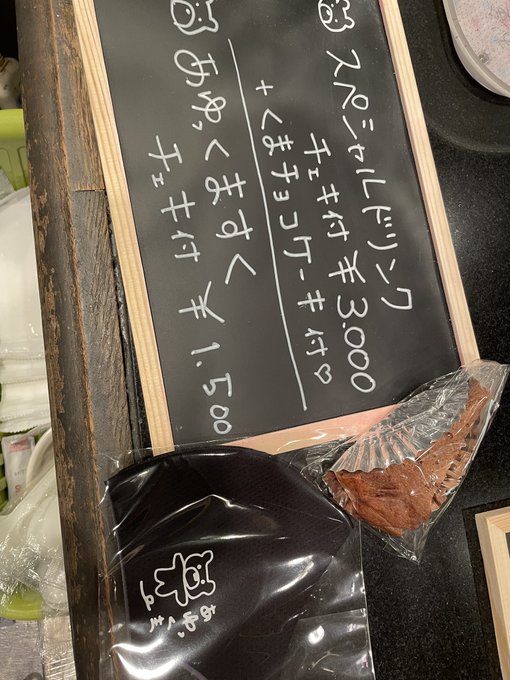 スペシャルドリンク
チェキ付 ¥3.000
+くまチョコケーキ付♡
あゆっくますく
チェキ付 ¥1.500